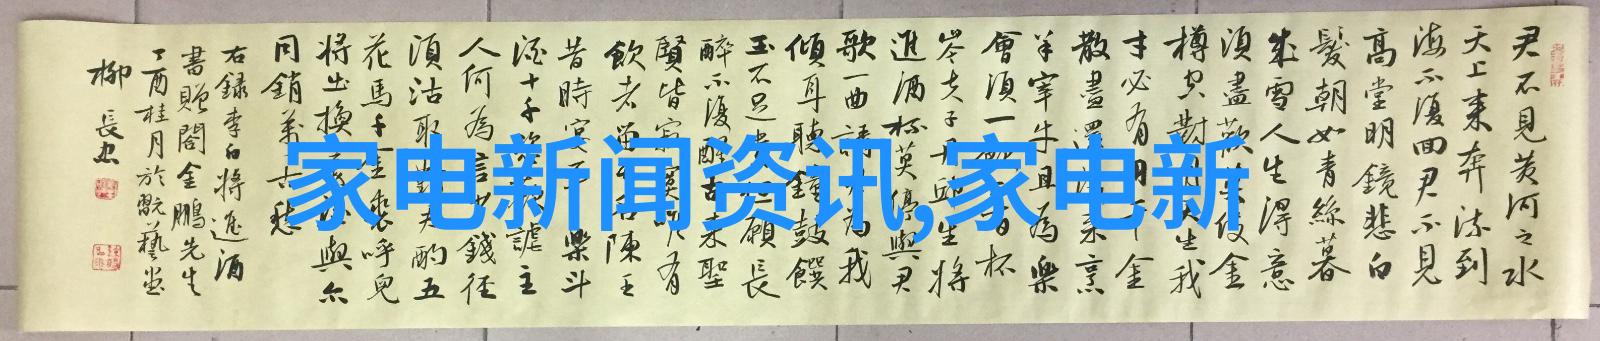 君不見黄河之水
天上来奔流到
海不復回君不見
高堂明鏡悲白
髮朝如青絲暮
成雪人生得意
須盡歡使金
樽空對月天生我
才必有用千金
散盡還復来烹
羊宰牛且為樂
會須一百杯
岑夫子丹邱生將
進酒杯莫停與君
歌一曲請為我
傾耳聽鐘鼓饌
玉不足願長
醉不復醒古来聖
賢皆寂寞唯有
飲者陳王
昔時宴樂斗
酒十千謔主
人何為言少錢径
須沽取對君酌五
花馬千金裘呼兒
將出換酒與尔
同銷萬古愁
右録李白將進酒
書贈閤金鵬先生
丁酉桂月於藝堂
柳長忠
家电新闻资讯,家电新